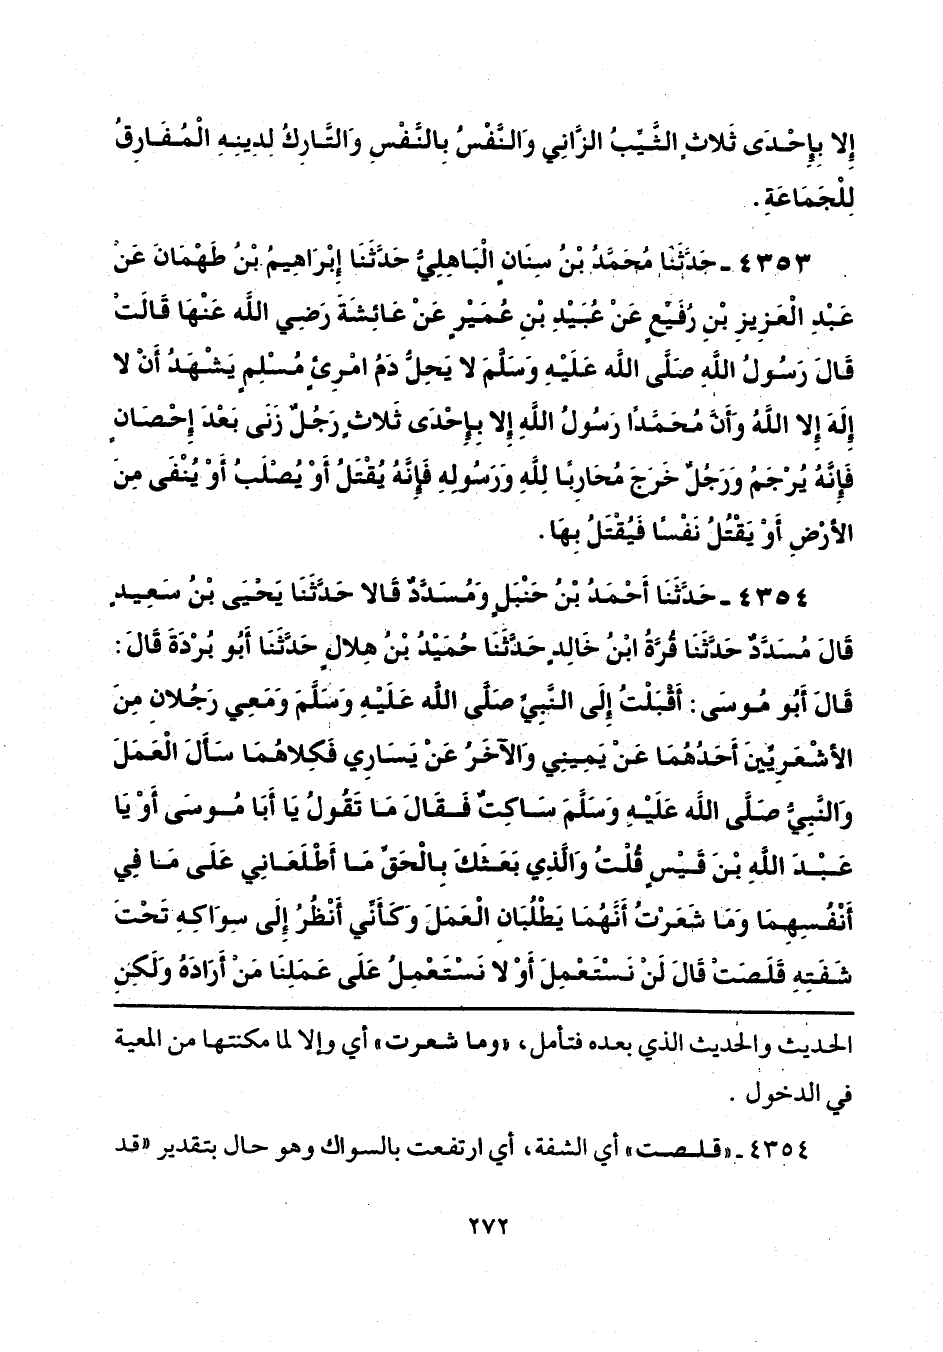 إلا بِإِحْدَى ثَلاثٍ الثَّيِّبُ الزَّانِي وَالنَّفْسُ بِالنَّفْسِ وَالتَّارِكُ لِدِينِهِ الْمُفَارِقُ
لِلْجَمَاعَةِ .
٤٣٥٣ ـ حَدَّثَنَا مُحَمَّدُ بْنُ سِنَانٍ الْبَاهِلِيُّ حَدَّثَنَا إِبْرَاهِيمُ بْنُ طَهْمَانَ عَنْ
عَبْدِ الْعَزِيزِ بْنِ رُفَيْعٍ عَنْ عُبَيْدِ بْنِ عُمَيْرٍ عَنْ عَائِشَةَ رَضِي اللَّه عَنْهَا قَالَتْ
قَالَ رَسُولُ اللَّهِ صَلَّى اللَّه عَلَيْهِ وَسَلَّمَ لا يَحِلُّ دَمُ امْرِئٍ مُسْلِمٍ يَشْهَدُ أَنْ لا
إِلَهَ إِلا اللَّهُ وَأَنَّ مُحَمَّدًا رَسُولُ اللَّهِ إِلا بِإِحْدَى ثَلاثٍ رَجُلٌ زَنَى بَعْدَ إِحْصَانٍ
فَإِنَّهُ يُرْجَمُ وَرَجُلٌ خَرَجَ مُحَارِبًا لِلَّهِ وَرَسُولِهِ فَإِنَّهُ يُقْتَلُ أَوْ يُصْلَبُ أَوْ يُنْفَى مِنَ
الأَرْضِ أَوْ يَقْتُلُ نَفْسًا فَيُقْتَلُ بِهَا .
٤٣٥٤ ـ حَدَّثَنَا أَحْمَدُ بْنُ حَنْبَلٍ وَمُسَدَّدٌ قَالا حَدَّثَنَا يَحْيَى بْنُ سَعِيدٍ
قَالَ مُسَدَّدٌ حَدَّثَنَا قُرَّةُ ابْنُ خَالِدٍ حَدَّثَنَا حُمَيْدُ بْنُ هِلالٍ حَدَّثَنَا أَبُو بُرْدَةَ قَالَ :
قَالَ أَبُو مُوسَى : أَقْبَلْتُ إِلَى النَّبِيِّ صَلَّى اللَّه عَلَيْهِ وَسَلَّمَ وَمَعِي رَجُلانِ مِنَ
الأَشْعَرِيِّينَ أَحَدُهُمَا عَنْ يَمِينِي وَالآخَرُ عَنْ يَسَارِي فَكِلاهُمَا سَأَلَ الْعَمَلَ
وَالنَّبِيُّ صَلَّى اللَّه عَلَيْهِ وَسَلَّمَ سَاكِتٌ فَقَالَ مَا تَقُولُ يَا أَبَا مُوسَى أَوْ يَا
عَبْدَ اللَّهِ بْنَ قَيْسٍ قُلْتُ وَالَّذِي بَعَثَكَ بِالْحَقِّ مَا أَطْلَعَانِي عَلَى مَا فِي
أَنْفُسِهِمَا وَمَا شَعَرْتُ أَنَّهُمَا يَطْلُبَانِ الْعَمَلَ وَكَأَنِّي أَنْظُرُ إِلَى سِوَاكِهِ تَحْتَ
شَفَتِهِ قَلَصَتْ قَالَ لَنْ نَسْتَعْمِلَ أَوْ لا نَسْتَعْمِلُ عَلَى عَمَلِنَا مَنْ أَرَادَهُ وَلَكِنِ
الحديث والحديث الذي بعده فتأمل، «وما شعرت» أي وإلا لما مكنتها من المعية
في الدخول .
٤٣٥٤ ـ «قلصت» أي الشفة، أي ارتفعت بالسواك وهو حال بتقدير «قد
٢٧٢